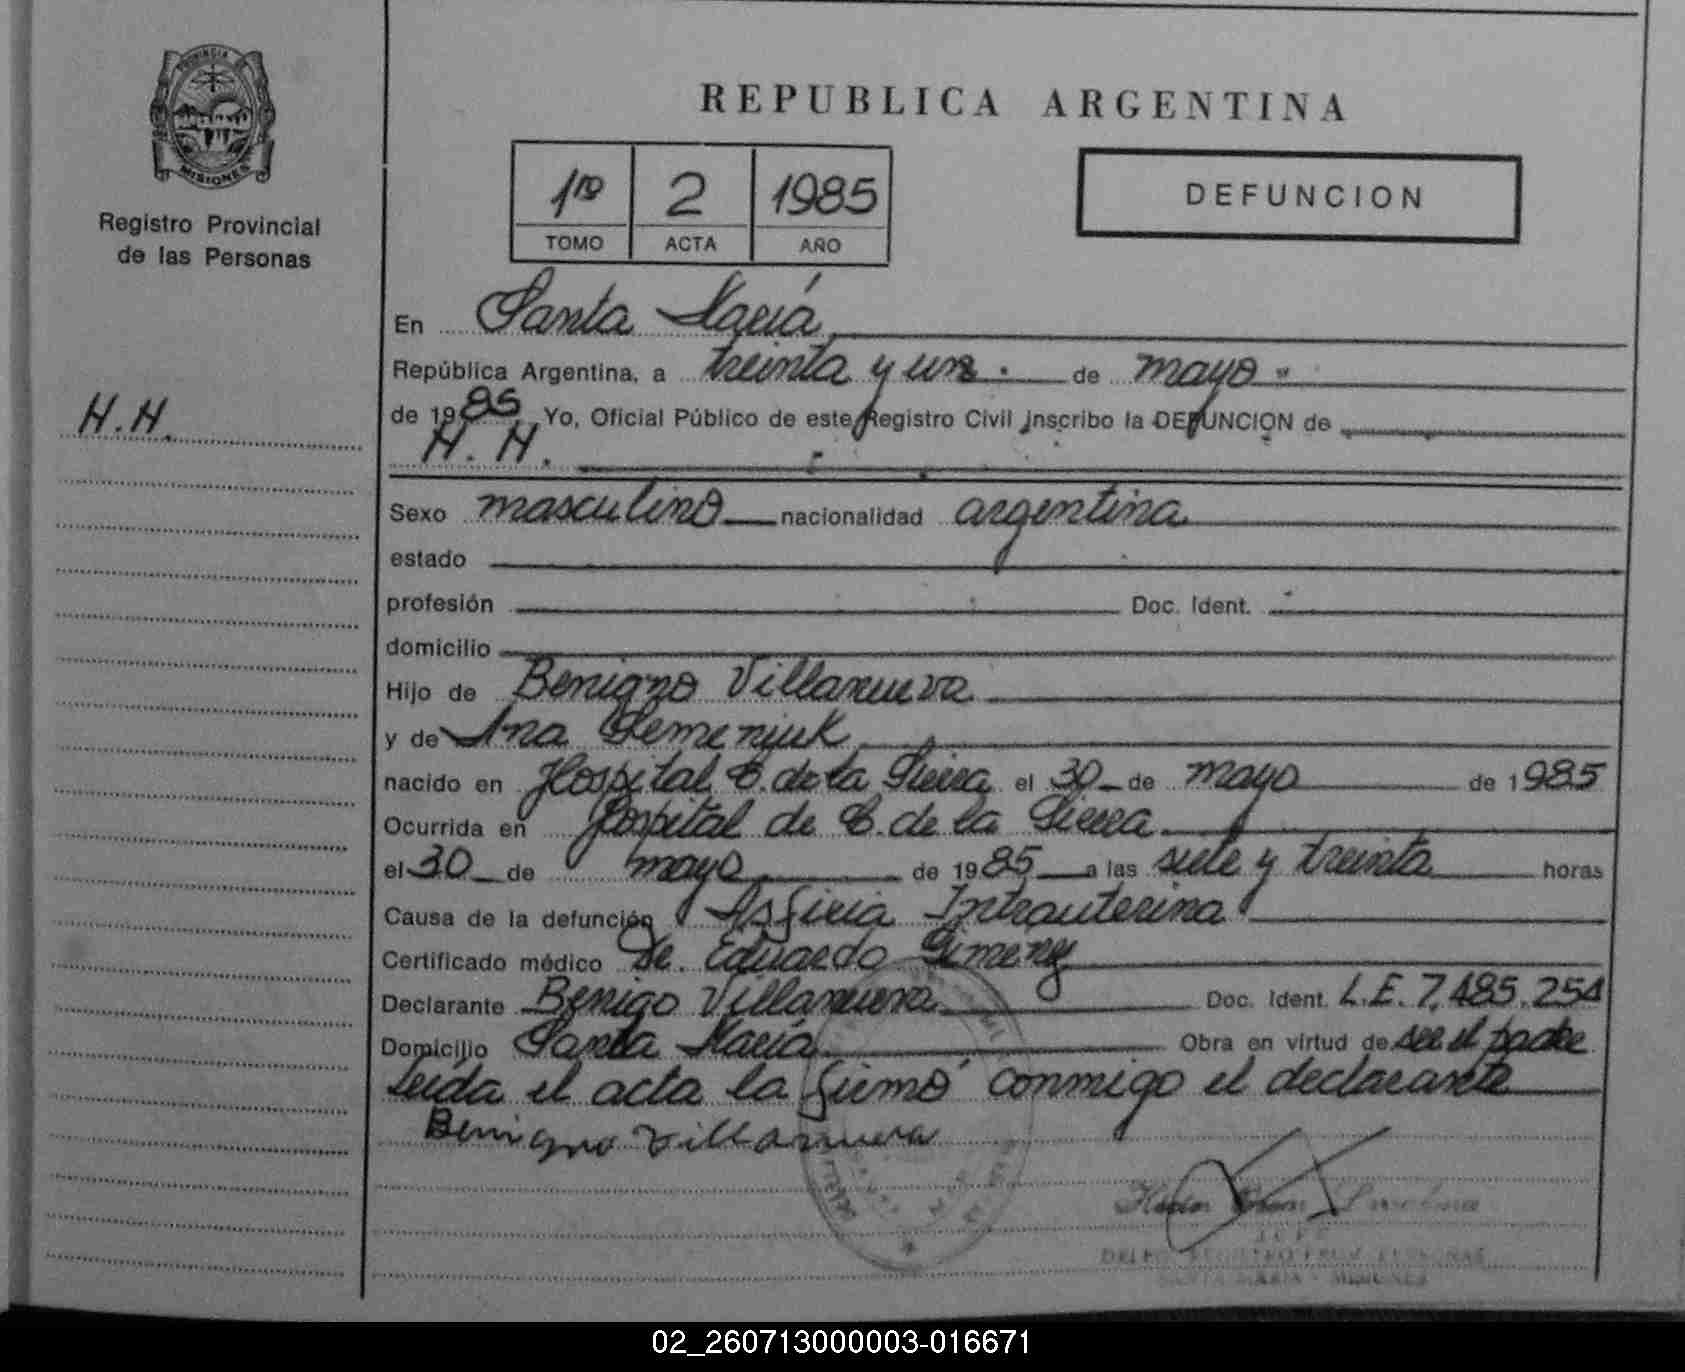 PROVINCIA DE
MISIONES
Registro Provincial
de las Personas
H.H.
REPUBLICA ARGENTINA
1ro 2 1985
TOMO ACTA AÑO
DEFUNCION
En Santa María
República Argentina, a treinta y uno de mayo
de 1985 Yo, Oficial Público de este Registro Civil inscribo la DEFUNCION de
H. H.
Sexo masculino nacionalidad argentina
estado
profesión Doc. Ident.
domicilio
Hijo de Benigno Villanueva
y de Ana Semeniuk
nacido en Hospital C. de la Sierra el 30 de mayo de 1985
Ocurrida en Hospital de C. de la Sierra
el 30 de mayo de 1985 a las siete y treinta horas
Causa de la defunción Asficia Intrauterina
Certificado médico Dr. Eduardo Gimenez
Declarante Benigo Villanueva Doc. Ident. L.E. 7.485.254
Domicilio Santa María Obra en virtud de ser el padre
Leída el acta la firmó conmigo el declarante
Benigno Villanueva
SANTA MARIA - MISIONES
02_260713000003-016671